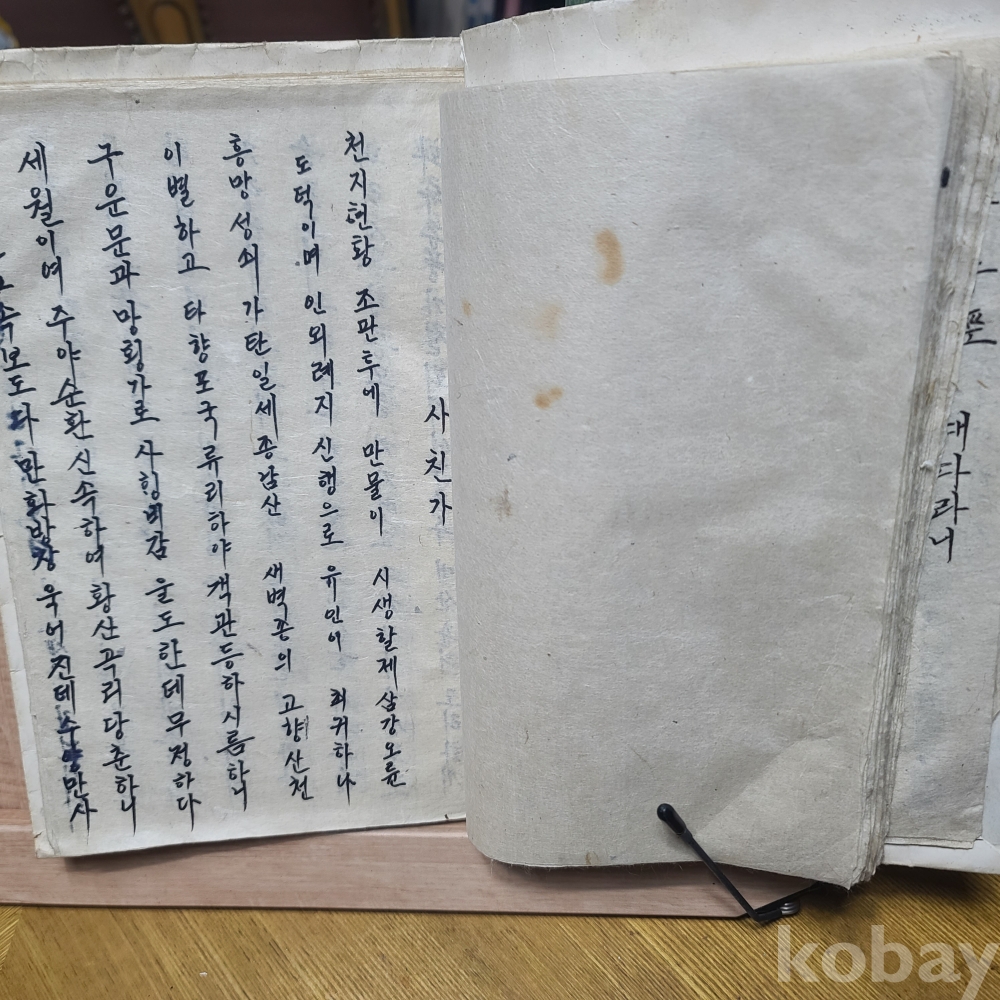 다라니
사친가
천지현황 조판후에 만물이 시생할제 삼강오륜
도덕이며 인외례지 신행으로 유인이 최귀하나
흥망성쇠 가탄일세 종남산 새벽종의 고향산천
이별하고 타향포국 류리하야 객관등하시름하니
구운문과 망횡가로 사힝비감 울도한데 무정하다
세월이여 주야순환신속하여 황산곡리당춘하니
만화방창 욱어진데 수양만사
kobay